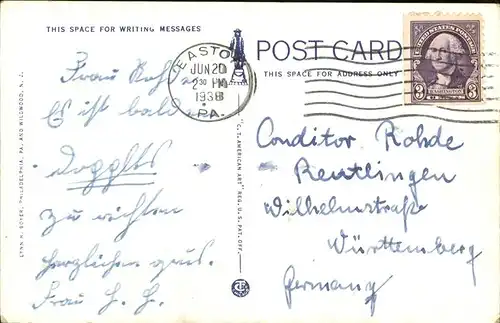 THIS SPACE FOR WRITING MESSAGES
Frau
Es ist bald
zu
herzlichen
Frau H. H.
LYNN H. BOYER, PHILADELPHIA, PA. AND WILDWOOD, N. J.
"C. T. AMERICAN ART" REG. U. S. PAT. OFF.
EASTON
JUN 20
2 30 PM
1938
PA.
POST CARD
THIS SPACE FOR ADDRESS ONLY
UNITED STATES POSTAGE
3 WASHINGTON 3
Conditor Rohde
Reutlingen
Wilhelmstraße
Württemberg
Germany